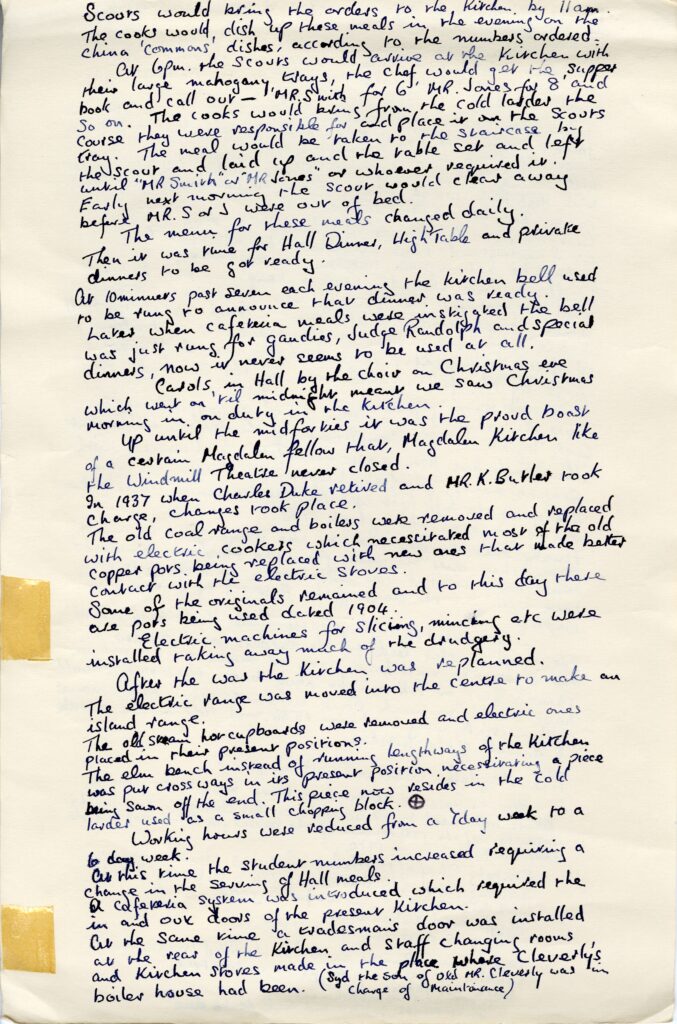 Scouts would bring the orders to the Kitchen by 11am.
The cooks would, dish up these meals in the evening on the
china 'commons' dishes, according to the numbers ordered.
At 6pm. the scouts would arrive at the Kitchen with
their large mahogany trays, the chef would get the supper
book and call out — "MR. Smith for 6" "MR. Jones for 8" and
so on. The cooks would bring from the cold larder the
course they were responsible for and place it on the Scouts
tray. The meal would be taken to the staircase by
the scout and laid up and the table set and left
until "MR Smith" or "MR Jones" or whoever required it.
Early next morning the scout would clear away
before MR. S or J were out of bed.
The menu for these meals changed daily.
Then it was time for Hall Dinner, High Table and private
dinners to be got ready.
At 10 minutes past seven each evening the kitchen bell used
to be rung to announce that dinner was ready.
Later when cafeteria meals were instigated the bell
was just rung for gaudies, Judge Randolph and special
dinners, now it never seems to be used at all.
Carols in Hall by the choir on Christmas eve
which went on 'til midnight meant we saw Christmas
morning in on duty in the Kitchen.
Up until the midforties it was the proud boast
of a certain Magdalen fellow that, Magdalen Kitchen like
the Windmill Theatre never closed.
In 1937 when Charles Duke retired and MR. K. Butler took
charge, changes took place.
The old coal range and boilers were removed and replaced
with electric cookers which necescitated most of the old
copper pots being replaced with new ones that made better
contact with the electric stoves.
Some of the originals remained and to this day there
are pots being used dated 1904.
Electric machines for slicing, mincing etc were
installed taking away much of the drudgery.
After the war the Kitchen was replanned.
The electric range was moved into the centre to make an
island range.
The old steam hotcupboards were removed and electric ones
placed in their present positions.
The elm bench instead of running lengthways of the Kitchen
was put crossways in its present position necescitating a piece
being sawn off the end. This piece now resides in the cold
larder used as a small chopping block. ⊕
Working hours were reduced from a 7day week to a
6 day week.
At this time the student numbers increased requiring a
change in the serving of Hall meals.
A cafeteria system was introduced which required the
in and out doors of the present Kitchen.
At the same time a tradesmans door was installed
at the rear of the Kitchen and staff changing rooms
and Kitchen stores made in the place where Cleverly's
boiler house had been. (Syd the son of old MR. Cleverly was in
charge of Maintainance)